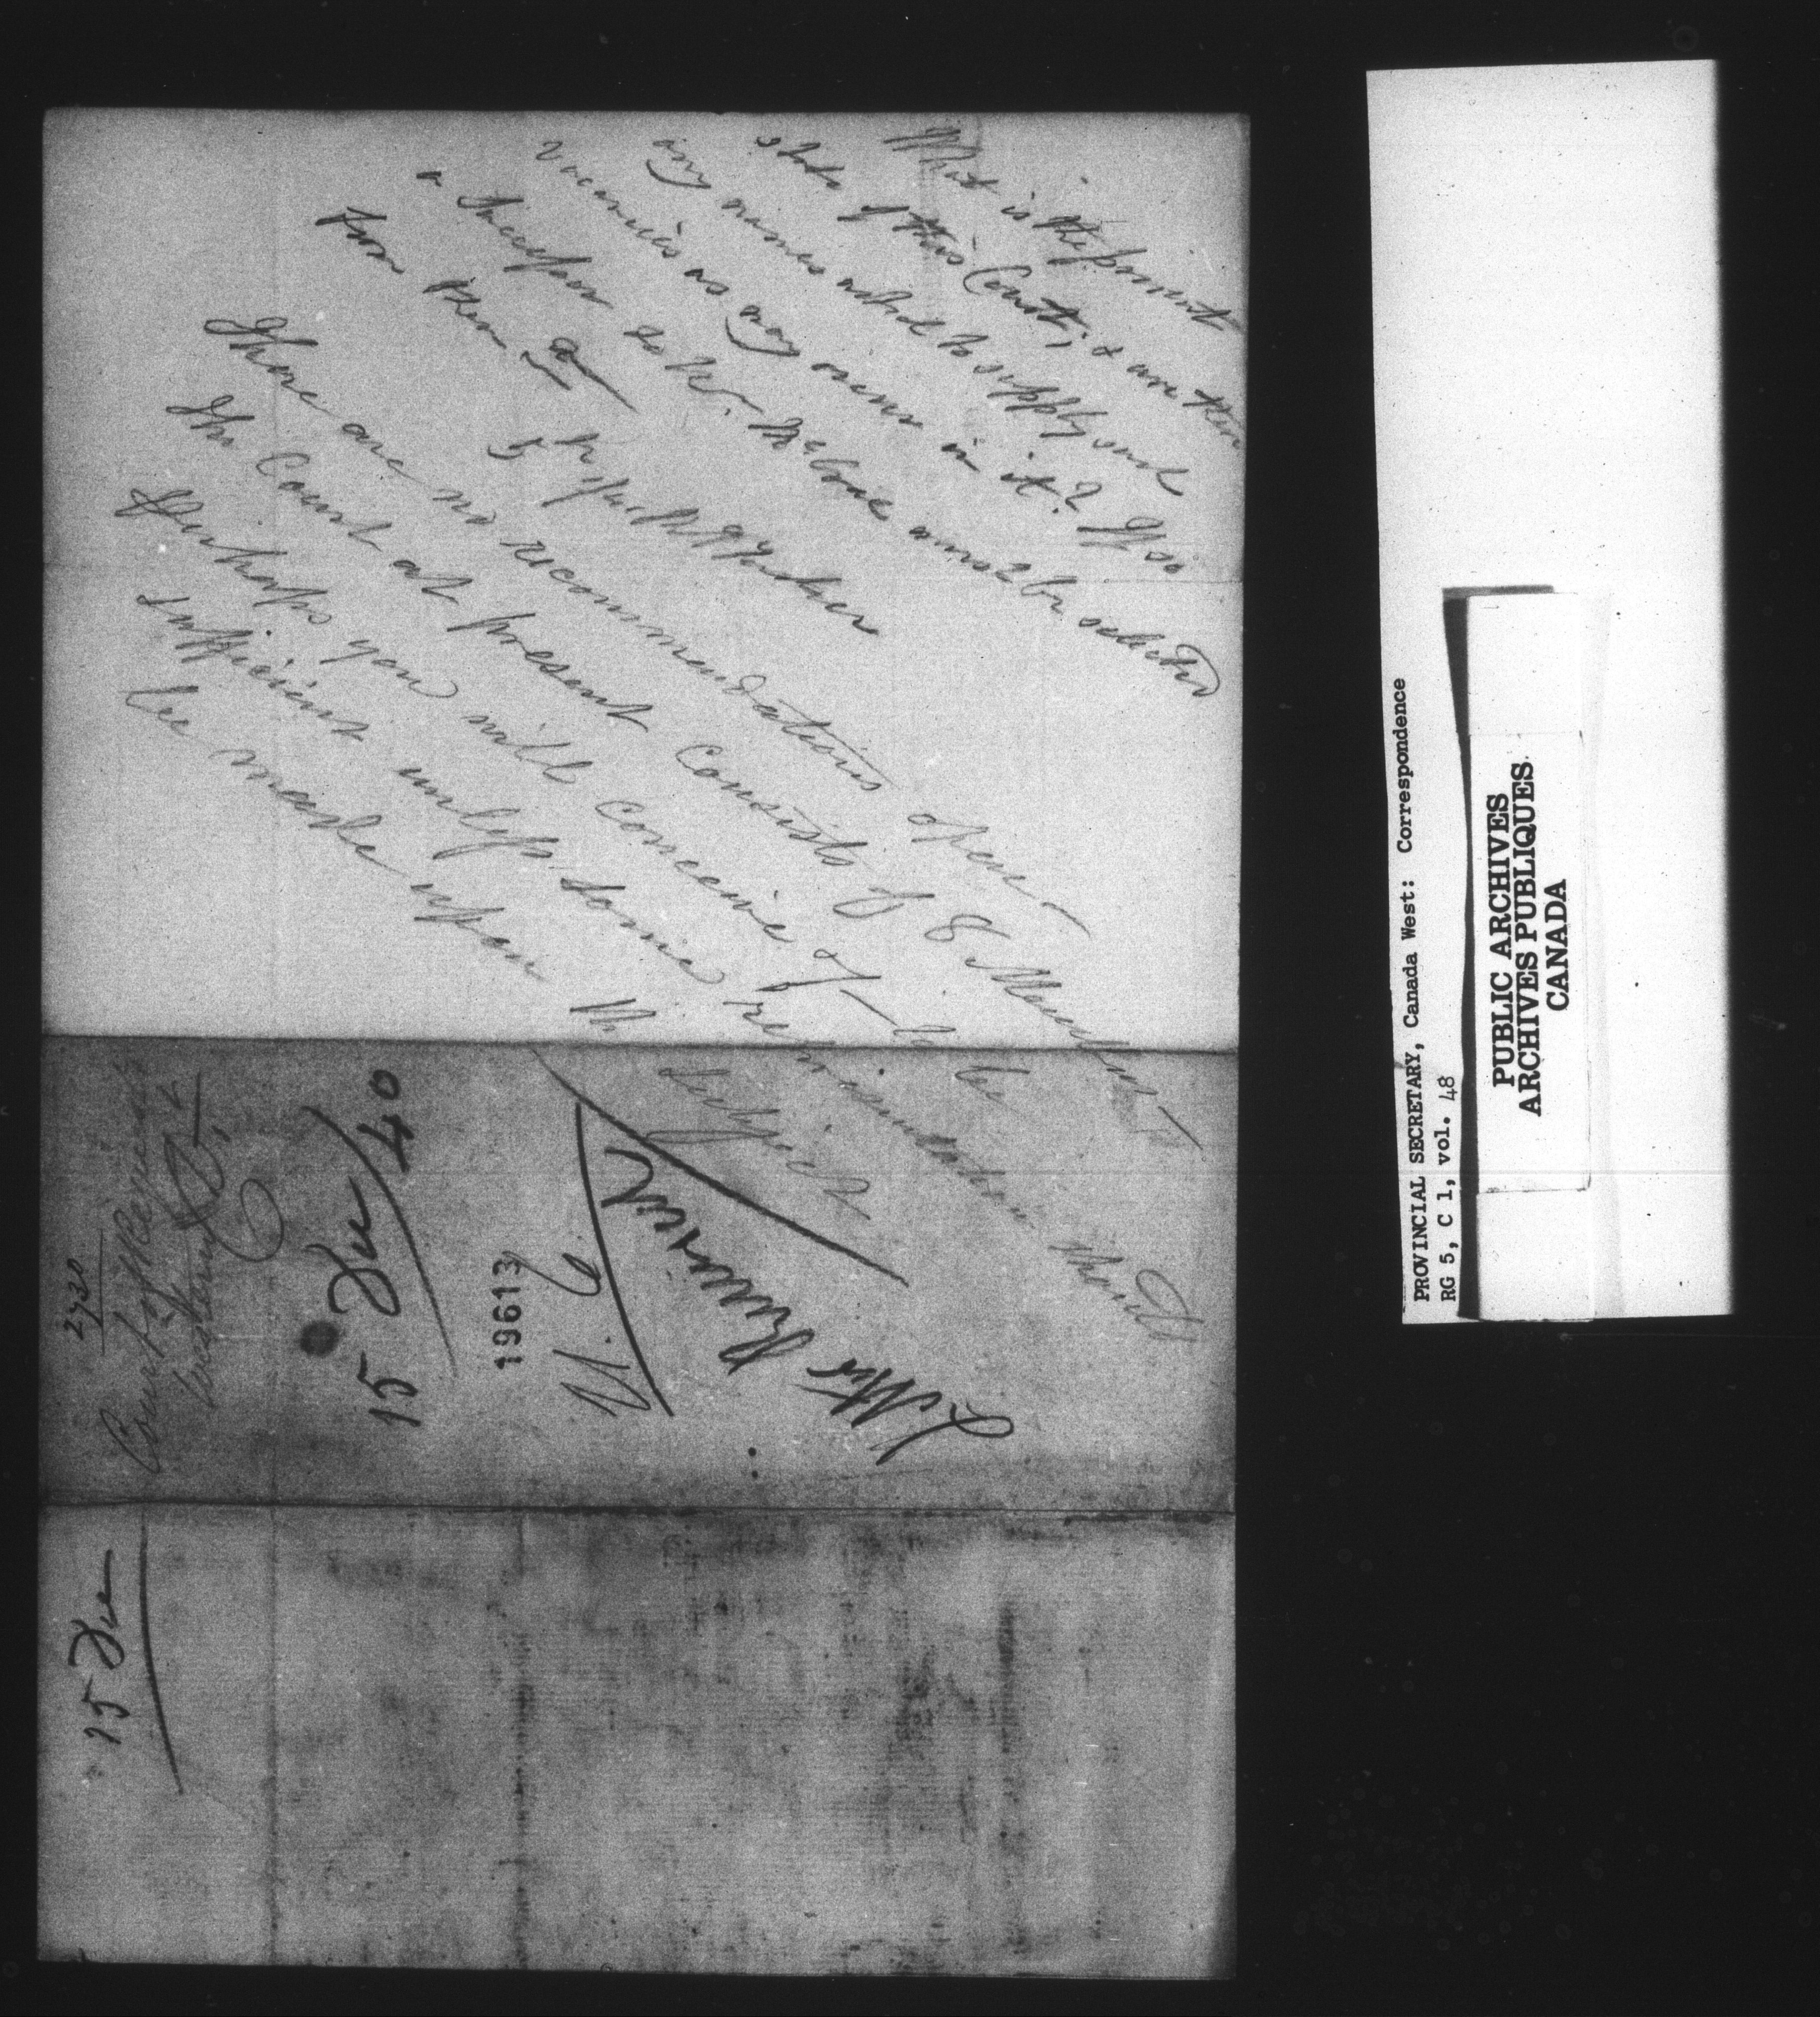 What is the present
state of this Court, & are there
any names noted to supply such
vacancies as may occur in it? If so
a Successor to W. McCrae must be selected
from them
5
There are no recommendations here –
The Court at present Consists of 8 Members –
Perhaps you will Conceive to be
sufficient unless some representation should
be made upon the subject
2730
Court of Requests
Western
15 Dec / 40
19613
U. C.
15 Dec
PROVINCIAL SECRETARY, Canada West: Correspondence
RG 5, C 1, vol. 48
PUBLIC ARCHIVES
ARCHIVES PUBLIQUES
CANADA